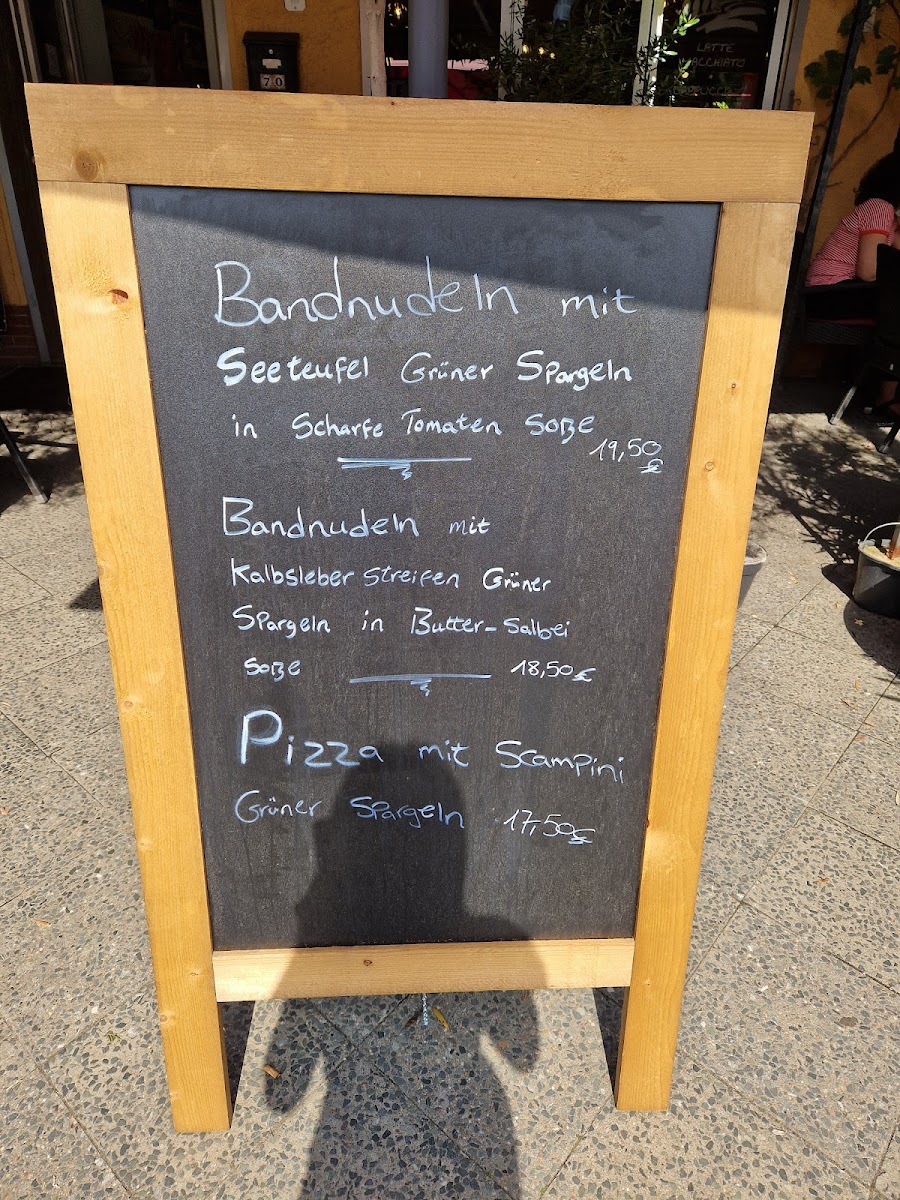 70
LATTE
MACCHIATO
Bandnudeln mit
Seeteufel Grüner Spargeln
in Scharfe Tomaten Soße
19,50 €
Bandnudeln mit
Kalbsleber streifen Grüner
Spargeln in Butter-Salbei
Soße 18,50€
Pizza mit Scampini
Grüner Spargeln 17,50€